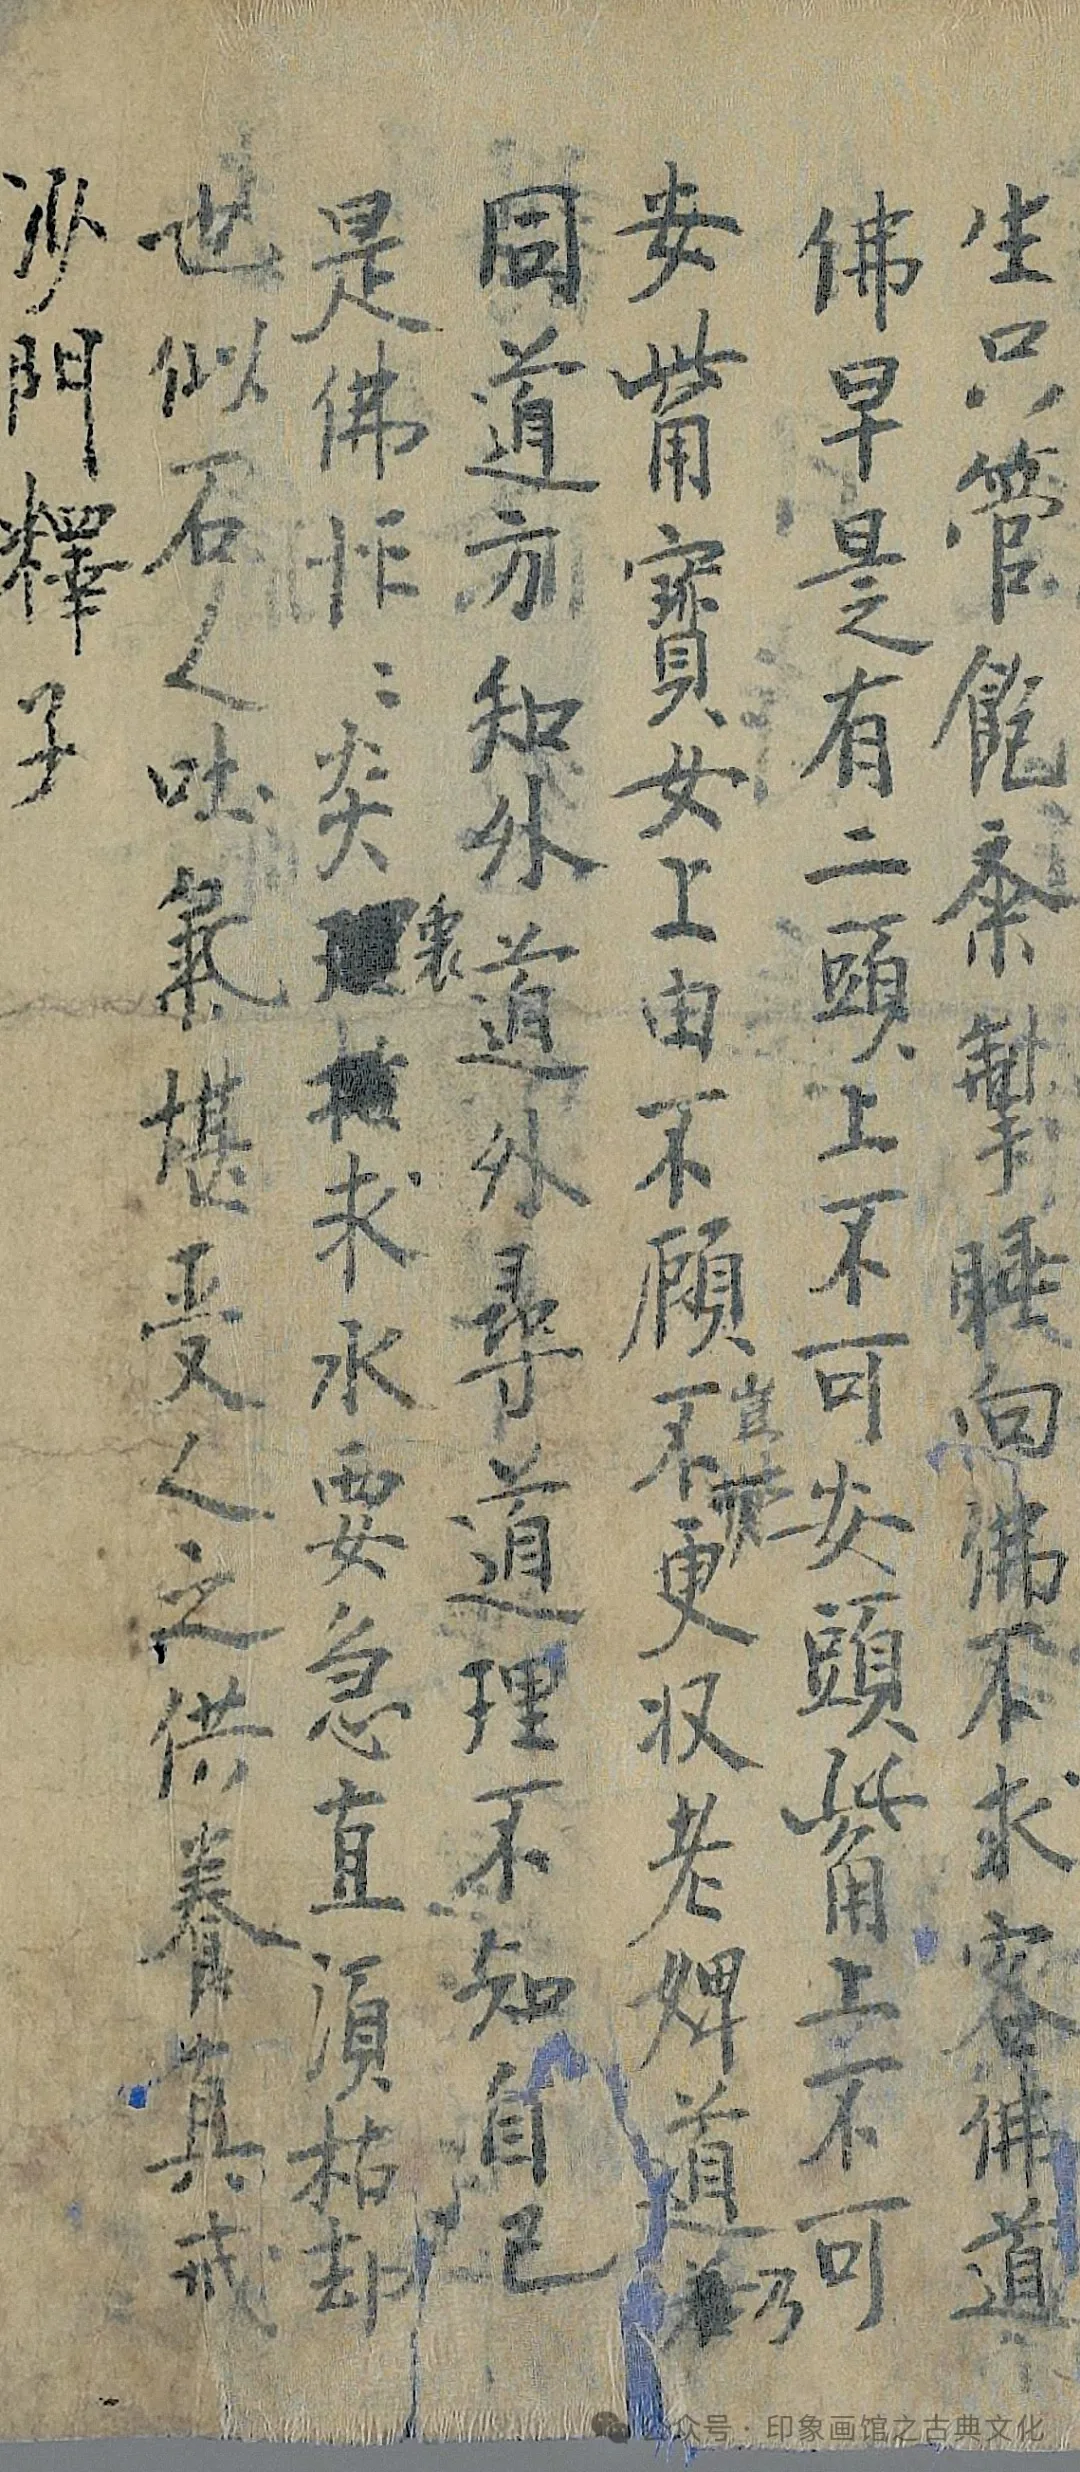 生只管飽齋掣睡向佛不求客佛道
佛早是有二頭上不可安頭觜上不可
安觜寳女上由不顧不更収老婢道乃
豈
同道方知外道外尋道理不知自己
是佛忙〻炎裏求水要急直須枯却
世似石人吐氣堪受人之供養真戒
沙門釋子
公众号·印象画馆之古典文化